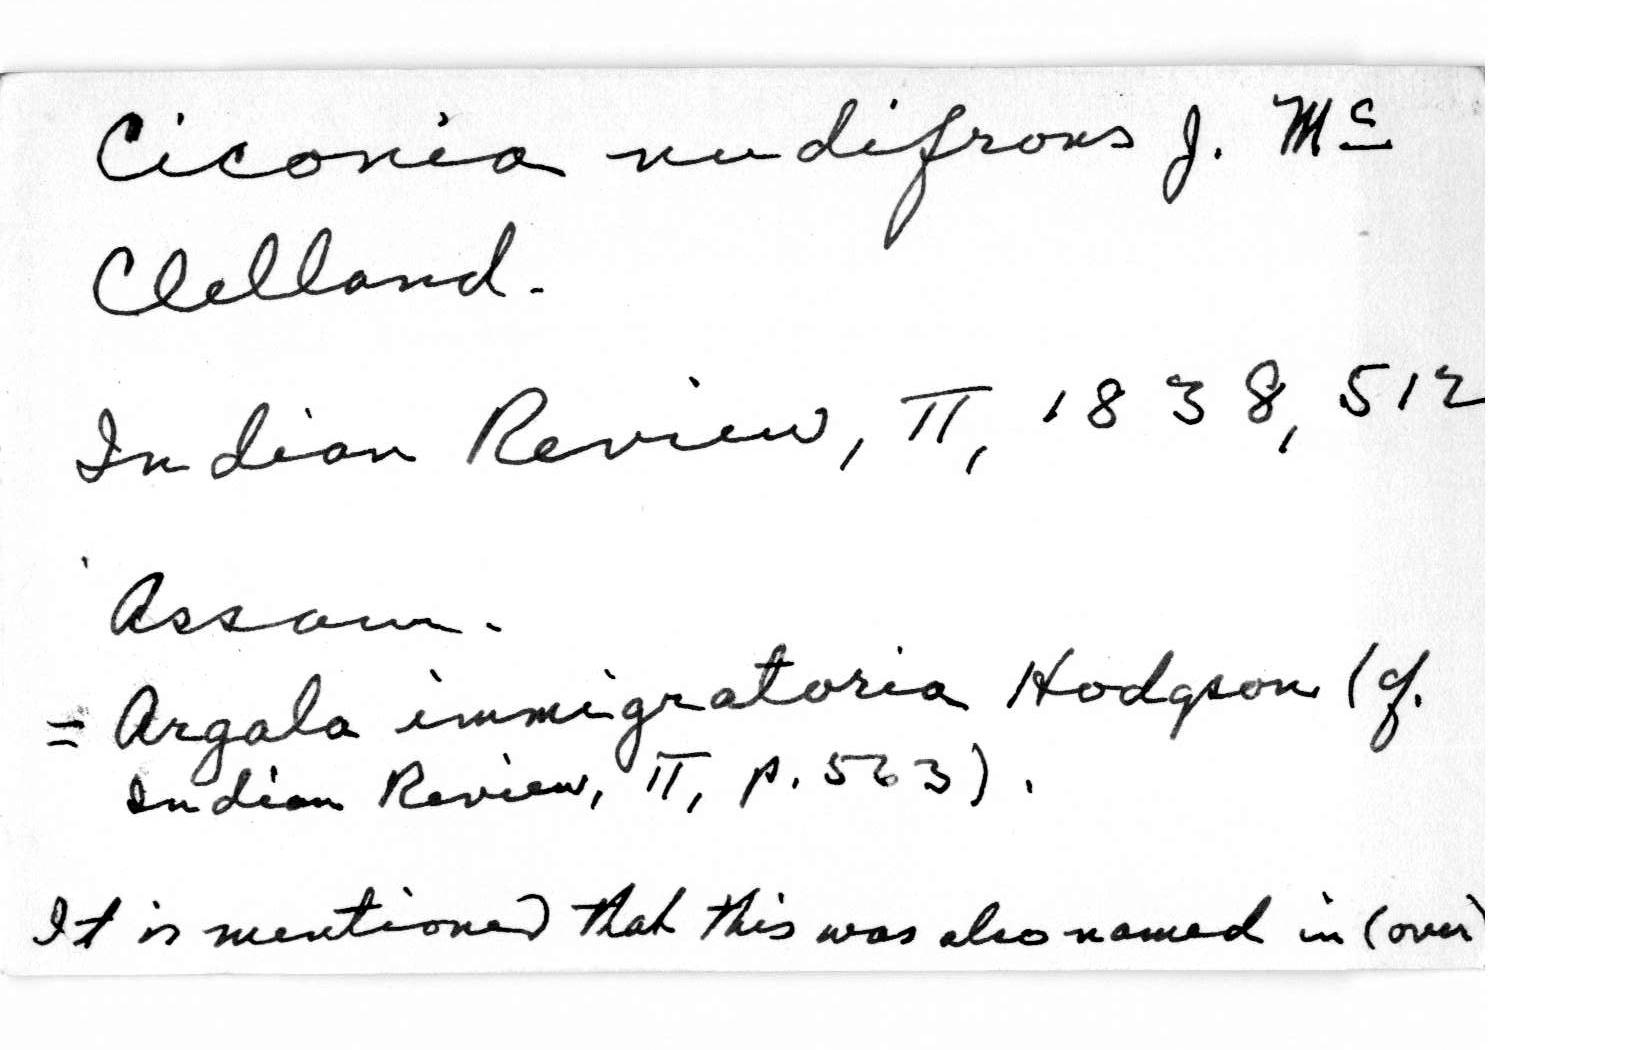 Ciconia nudifrons J. Mc
Clelland.
Indian Review, II, 1838, 512
Assam.
= Argala immigratoria Hodgson (cf.
Indian Review, II, p. 563).
It is mentioned that this was also named in (over)